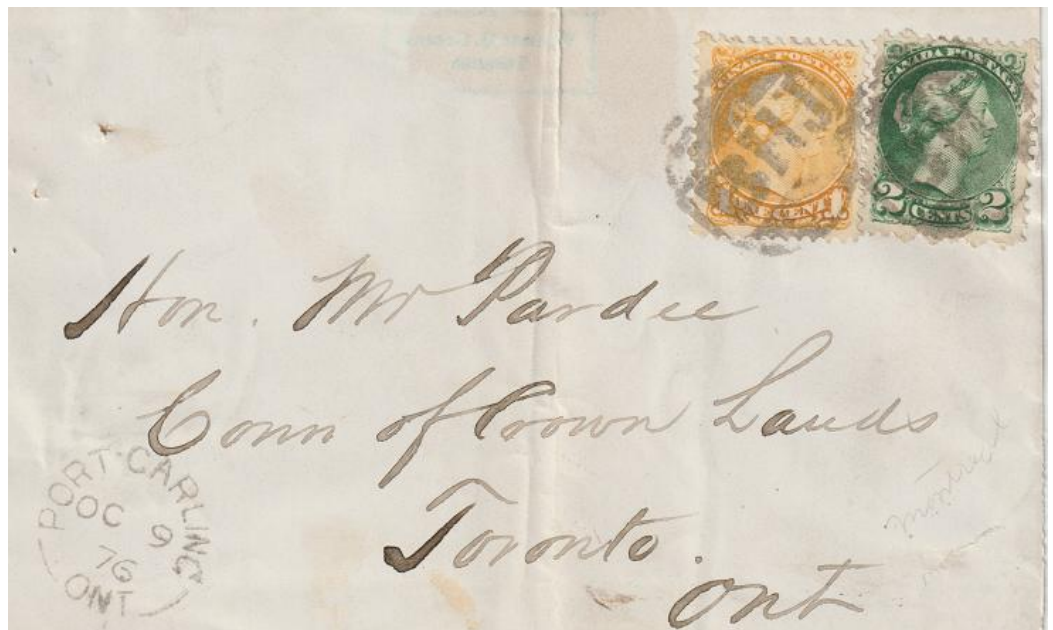 CANADA POSTAGE
ONE CENT
CANADA POSTAGE
2 CENTS 2
Hon. Mr Pardee
Comn of Crown Lands
Toronto.
Ont
PORT·CARLING
OC 9
76
ONT
Montreal